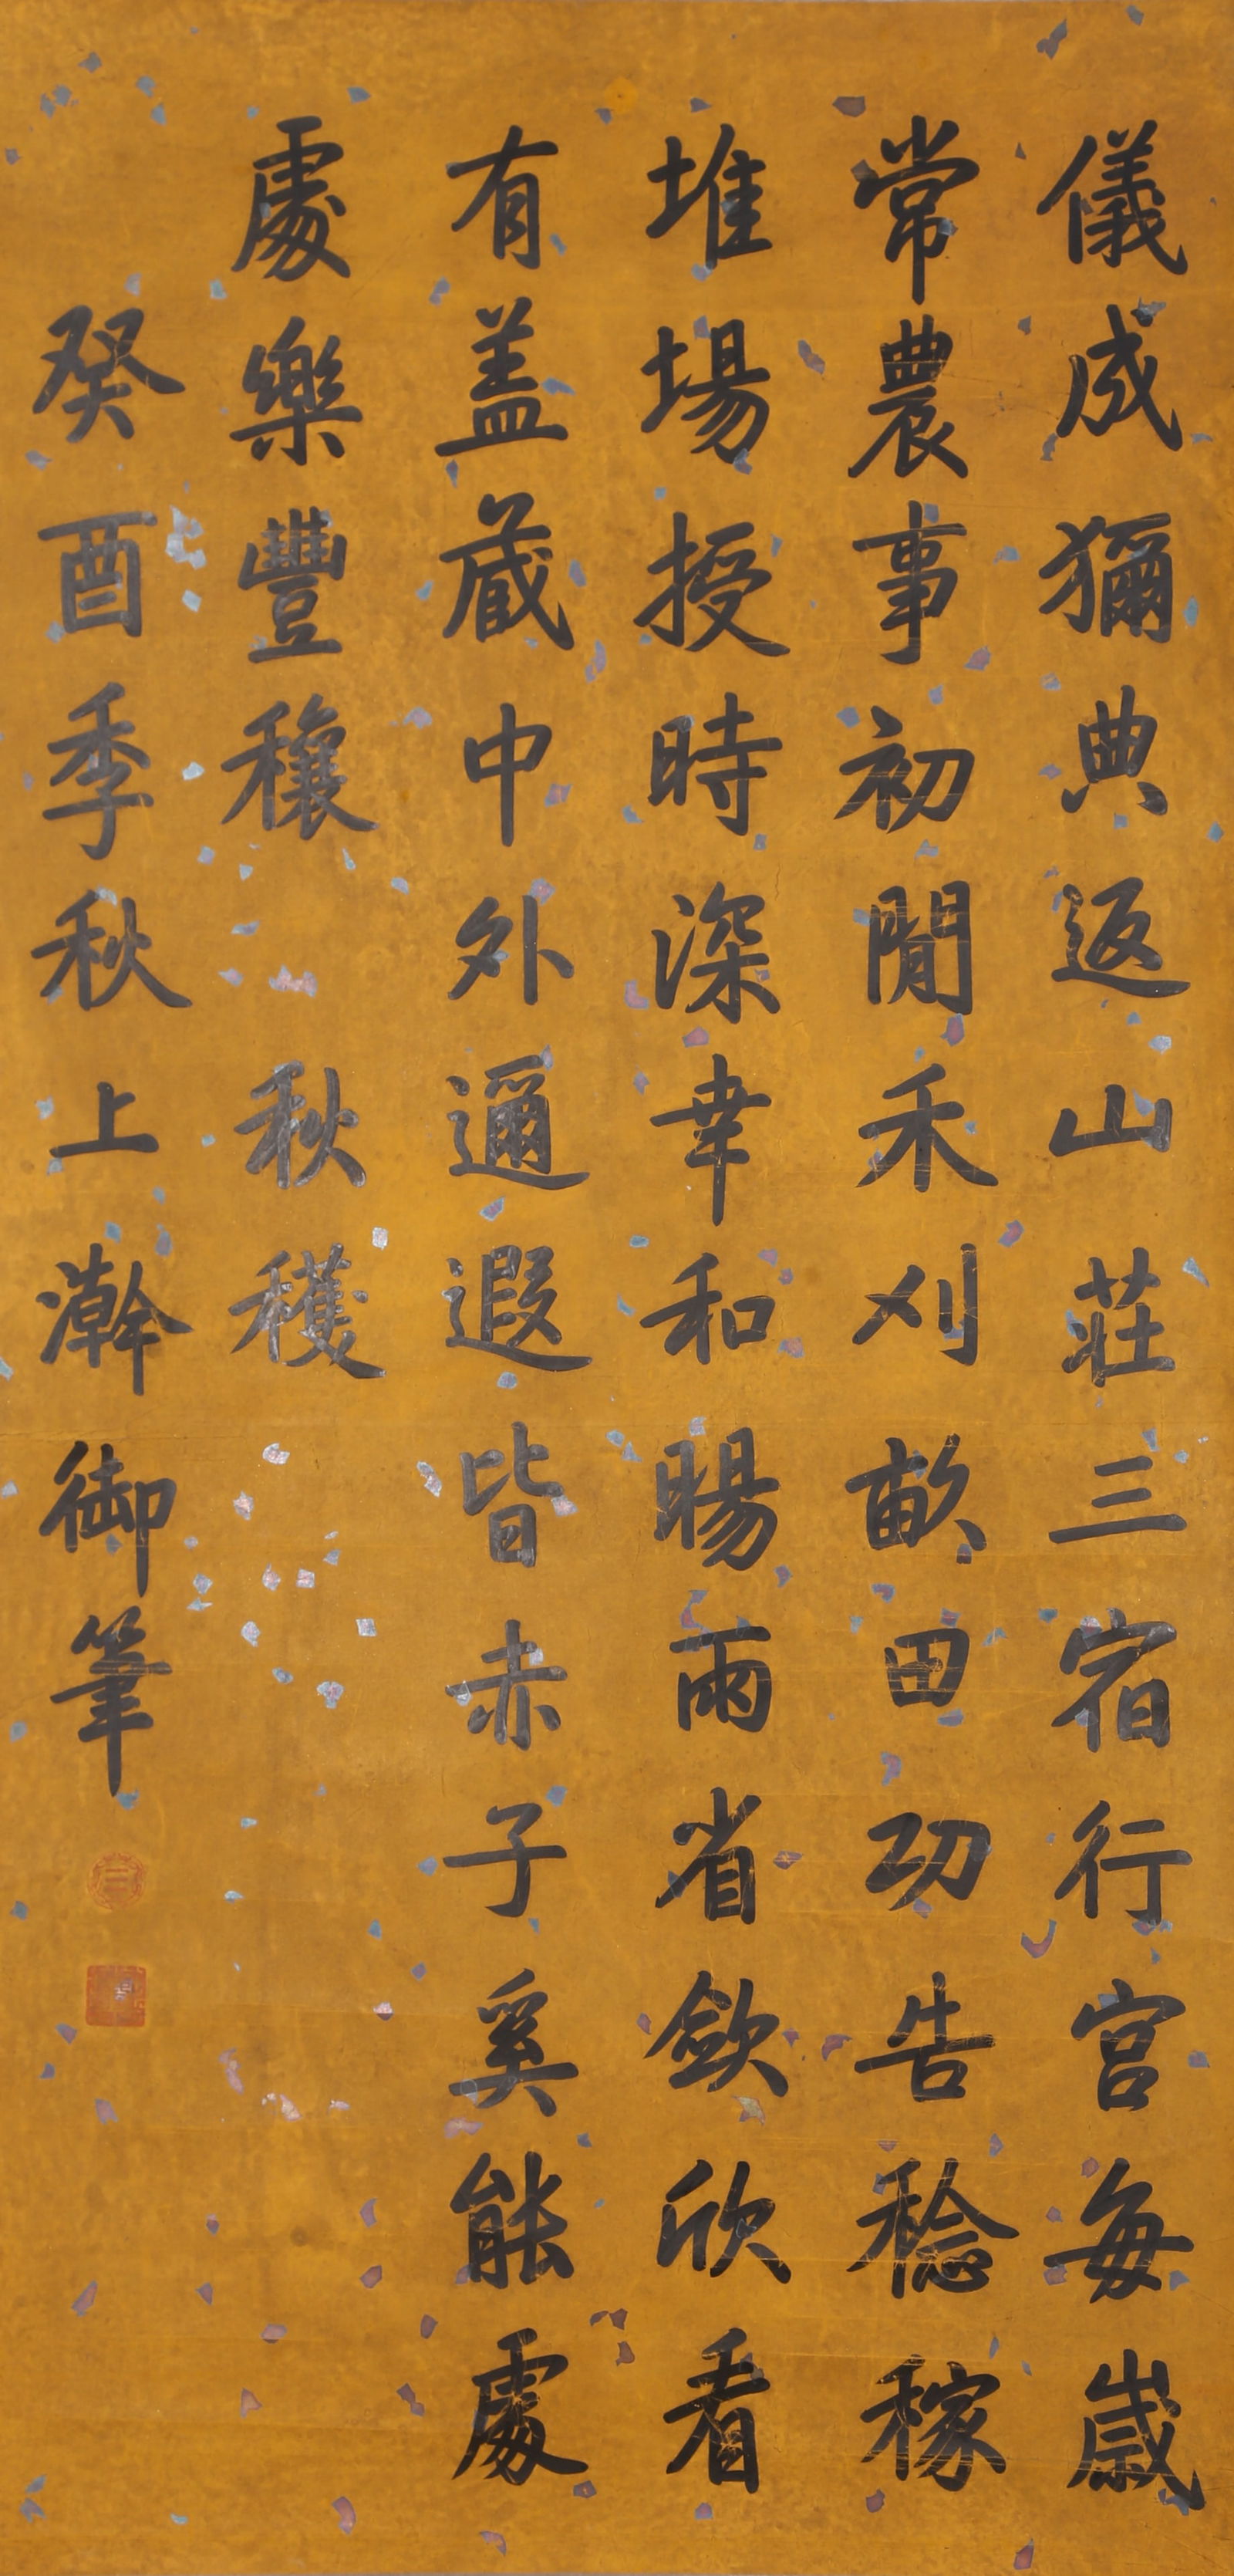 儀成獮典返山莊三宿行宮每歲
常農事初閒禾刈畝田功告稔稼
堆場授時深幸和暘雨省斂欣看
有蓋蔵中外邇遐皆赤子奚能處
處樂豐穰　秋穫
癸酉季秋上澣御筆